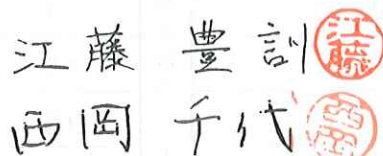 江藤 豊訓 江藤
西岡 千代 西岡